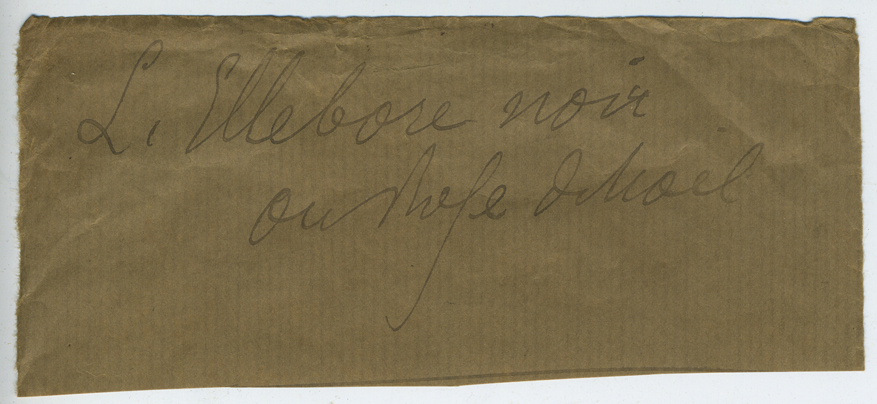 L, Ellebore noir
ou Rose de Noel